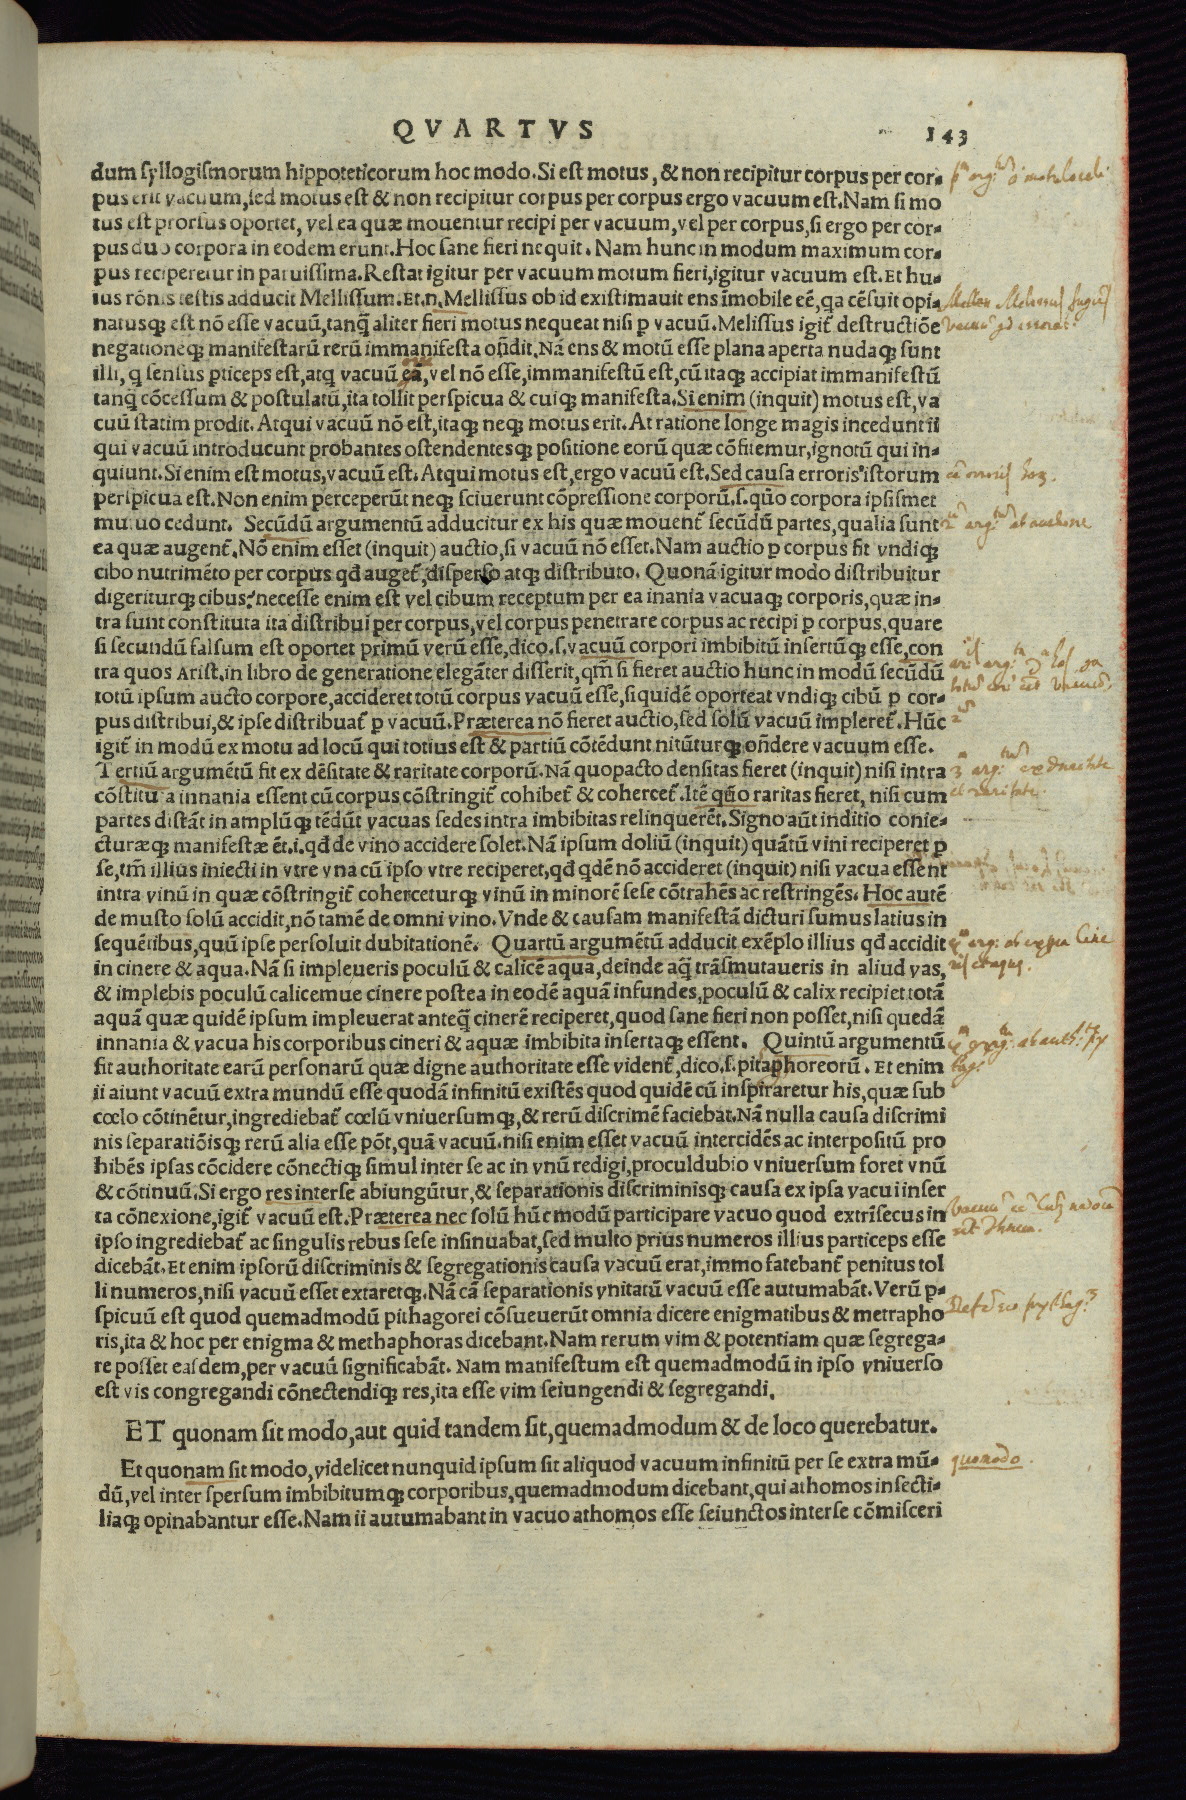 QVARTVS 143
dum syllogismorum hippoteticorum hoc modo. Si est motus, & non recipitur corpus per cor-
pus erit vacuum, sed motus est & non recipitur corpus per corpus ergo vacuum est. Nam si mo
tus est prorsus oportet, vel ea quæ mouentur recipi per vacuum, vel per corpus, si ergo per cor-
pus duo corpora in eodem erunt. Hoc sane fieri nequit. Nam hunc in modum maximum cor-
pus reciperetur in paruissima. Restat igitur per vacuum motum fieri, igitur vacuum est. Et hu-
ius rōnis testis adducit Mellissum. Et.n. Mellissus ob id existimauit ens īmobile eē, qa cēsuit opi-
natusqꝫ est nō esse vacuū, tanq̄ aliter fieri motus nequeat nisi p vacuū. Melissus igit̄ destructiōe
negationeqꝫ manifestarū rerū immanifesta on̄dit. Nā ens & motū esse plana aperta nudaqꝫ sunt
illi, q sensus pticeps est, atq vacuū eā, vel nō esse, immanifestū est, cū itaqꝫ accipiat immanifestū
tanq̄ cōcessum & postulatū, ita tollit perspicua & cuiqꝫ manifesta. Si enim (inquit) motus est, va
cuū statim prodit. Atqui vacuū nō est, itaqꝫ neqꝫ motus erit. At ratione longe magis incedunt ii
qui vacuū introducunt probantes ostendentesqꝫ positione eorū quæ cōfitemur, ignotū qui in-
quiunt. Si enim est motus, vacuū est. Atqui motus est, ergo vacuū est. Sed causa erroris istorum
perspicua est. Non enim perceperūt neqꝫ sciuerunt cōpressione corporū.s. quō corpora ipsismet
mutuo cedunt. Secūdū argumentū adducitur ex his quæ mouent̄ secūdū partes, qualia sunt
ea quæ augent̄. Nō enim esset (inquit) auctio, si vacuū nō esset. Nam auctio p corpus fit vndiqꝫ
cibo nutrimēto per corpus qđ auget̄, disperso atqꝫ distributo. Quonā igitur modo distribuitur
digeriturqꝫ cibus? necesse enim est vel cibum receptum per ea inania vacuaqꝫ corporis, quæ in-
tra sunt constituta ita distribui per corpus, vel corpus penetrare corpus ac recipi p corpus, quare
si secundū falsum est oportet primū verū esse, dico.s. vacuū corpori imbibitū insertūqꝫ esse, con
tra quos Arist. in libro de generatione elegāter disserit, qm̄ si fieret auctio hunc in modū secūdū
totū ipsum aucto corpore, accideret totū corpus vacuū esse, siquidē oporteat vndiqꝫ cibū p cor-
pus distribui, & ipse distribuat̄ p vacuū. Præterea nō fieret auctio, sed solū vacuū impleret̄. Hūc
igit̄ in modū ex motu ad locū qui totius est & partiū cōtēdunt nitūturqꝫ on̄dere vacuum esse.
Tertiū argumētū fit ex dēsitate & raritate corporū. Nā quopacto densitas fieret (inquit) nisi intra
cōstituta innania essent cū corpus cōstringit̄ cohibet̄ & cohercet̄. Itē quō raritas fieret, nisi cum
partes distāt in amplūqꝫ tēdūt vacuas sedes intra imbibitas relinquerēt. Signo aūt inditio conie-
cturæqꝫ manifestæ ēt.i. qđ de vino accidere solet. Nā ipsum doliū (inquit) quātū vini reciperet p
se, tm̄ illius iniecti in vtre vna cū ipso vtre reciperet, qđ qdē nō accideret (inquit) nisi vacua essent
intra vinū in quæ cōstringit̄ cohercetur qꝫ vinū in minorē sese cōtrahēs ac restringēs. Hoc autē
de musto solū accidit, nō tamē de omni vino. Vnde & causam manifestā dicturi sumus latius in
sequētibus, quū ipse persoluit dubitationē. Quartū argumētū adducit exēplo illius qđ accidit
in cinere & aqua. Nā si impleueris poculū & calicē aqua, deinde aq̄ trāsmutaueris in aliud vas,
& implebis poculū calicemue cinere postea in eodē aquā infundes, poculū & calix recipiet totā
aquā quæ quidē ipsum impleuerat anteq̄ cinerē reciperet, quod sane fieri non posset, nisi quedā
innania & vacua his corporibus cineri & aquæ imbibita insertaqꝫ essent. Quintū argumentū
fit authoritate earū personarū quæ digne authoritate esse vident̄, dico.s. pitaphoreorū. Et enim
ii aiunt vacuū extra mundū esse quodā infinitū existēs quod quidē cū inspiraretur his, quæ sub
cœlo cōtinētur, ingrediebat̄ cœlū vniuersumqꝫ, & rerū discrimē faciebat. Nā nulla causa discrimi
nis separatiōisqꝫ rerū alia esse pōt, quā vacuū. nisi enim esset vacuū intercidēs ac interpositū pro
hibēs ipsas cōcidere cōnectiqꝫ simul inter se ac in vnū redigi, proculdubio vniuersum foret vnū
& cōtinuū. Si ergo res interse abiungūtur, & separationis discriminisqꝫ causa ex ipsa vacui inser
ta cōnexione, igit̄ vacuū est. Præterea nec solū hūc modū participare vacuo quod extrīsecus in
ipso ingrediebat̄ ac singulis rebus sese insinuabat, sed multo prius numeros illius particeps esse
dicebāt. Et enim ipsorū discriminis & segregationis causa vacuū erat, immo fatebant̄ penitus tol
li numeros, nisi vacuū esset extaretqꝫ. Nā cā separationis vnitatū vacuū esse autumabāt. Verū p-
spicuū est quod quemadmodū pithagorei cōsueuerūt omnia dicere enigmatibus & metrapho
ris, ita & hoc per enigma & methaphoras dicebant. Nam rerum vim & potentiam quæ segrega-
re posset easdem, per vacuū significabāt. Nam manifestum est quemadmodū in ipso vniuerso
est vis congregandi cōnectendiqꝫ res, ita esse vim seiungendi & segregandi.
ET quonam sit modo, aut quid tandem sit, quemadmodum & de loco querebatur.
Et quonam sit modo, videlicet nunquid ipsum sit aliquod vacuum infinitū per se extra mū-
dū, vel inter spersum imbibitumqꝫ corporibus, quemadmodum dicebant, qui athomos insecti-
liaqꝫ opinabantur esse. Nam ii autumabant in vacuo athomos esse seiunctos interse cōmisceri
quomodo.